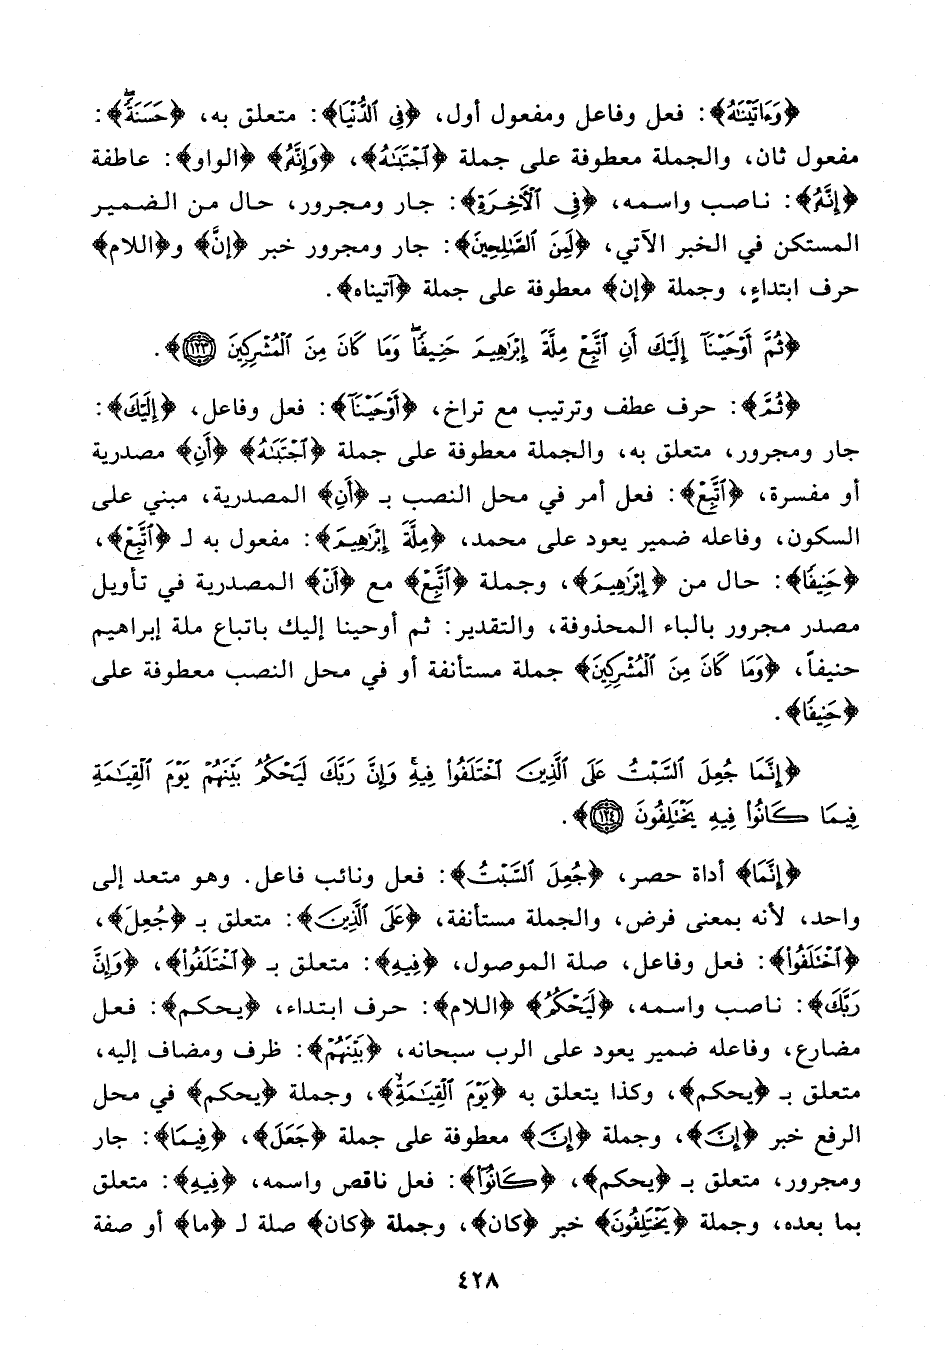 ﴿وَءَاتَيْنَـٰهُ﴾: فعل وفاعل ومفعول أول، ﴿فِي ٱلدُّنْيَا﴾: متعلق به، ﴿حَسَنَةًۖ﴾:
مفعول ثان، والجملة معطوفة على جملة ﴿ٱجْتَبَـٰهُ﴾، ﴿وَإِنَّهُۥ﴾ ﴿الواو﴾: عاطفة
﴿إِنَّهُۥ﴾: ناصب واسمه، ﴿فِي ٱلْأَخِرَةِ﴾: جار ومجرور، حال من الضمير
المستكن في الخبر الآتي، ﴿لَمِنَ ٱلصَّـٰلِحِينَ﴾: جار ومجرور خبر ﴿إنَّ﴾ و﴿اللام﴾
حرف ابتداءٍ، وجملة ﴿إن﴾ معطوفة على جملة ﴿آتيناه﴾.
﴿ثُمَّ أَوْحَيْنَآ إِلَيْكَ أَنِ ٱتَّبِعْ مِلَّةَ إِبْرَٰهِيمَ حَنِيفًاۖ وَمَا كَانَ مِنَ ٱلْمُشْرِكِينَ ١٢٣﴾.
﴿ثُمَّ﴾: حرف عطف وترتيب مع تراخ، ﴿أَوْحَيْنَآ﴾: فعل وفاعل، ﴿إِلَيْكَ﴾:
جار ومجرور، متعلق به، والجملة معطوفة على جملة ﴿ٱجْتَبَـٰهُ﴾ ﴿أَنِ﴾ مصدرية
أو مفسرة، ﴿ٱتَّبِعْ﴾: فعل أمر في محل النصب بـ ﴿أَنِ﴾ المصدرية، مبني على
السكون، وفاعله ضمير يعود على محمد، ﴿مِلَّةَ إِبْرَٰهِيمَ﴾: مفعول به لـ ﴿ٱتَّبِعْ﴾،
﴿حَنِيفًا﴾: حال من ﴿إِبْرَٰهِيمَ﴾، وجملة ﴿ٱتَّبِعْ﴾ مع ﴿أَنْ﴾ المصدرية في تأويل
مصدر مجرور بالباء المحذوفة، والتقدير: ثم أوحينا إليك باتباع ملة إبراهيم
حنيفاً، ﴿وَمَا كَانَ مِنَ ٱلْمُشْرِكِينَ﴾ جملة مستأنفة أو في محل النصب معطوفة على
﴿حَنِيفًا﴾.
﴿إِنَّمَا جُعِلَ ٱلسَّبْتُ عَلَى ٱلَّذِينَ ٱخْتَلَفُوا۟ فِيهِۚ وَإِنَّ رَبَّكَ لَيَحْكُمُ بَيْنَهُمْ يَوْمَ ٱلْقِيَـٰمَةِ
فِيمَا كَانُوا۟ فِيهِ يَخْتَلِفُونَ ١٢٤﴾.
﴿إِنَّمَا﴾ أداة حصر، ﴿جُعِلَ ٱلسَّبْتُ﴾: فعل ونائب فاعل. وهو متعد إلى
واحد، لأنه بمعنى فرض، والجملة مستأنفة، ﴿عَلَى ٱلَّذِينَ﴾: متعلق بـ ﴿جُعِلَ﴾،
﴿ٱخْتَلَفُوا۟﴾: فعل وفاعل، صلة الموصول، ﴿فِيهِ﴾: متعلق بـ ﴿ٱخْتَلَفُوا۟﴾، ﴿وَإِنَّ
رَبَّكَ﴾: ناصب واسمه، ﴿لَيَحْكُمُ﴾ ﴿اللام﴾: حرف ابتداء، ﴿يحكم﴾: فعل
مضارع، وفاعله ضمير يعود على الرب سبحانه، ﴿بَيْنَهُمْ﴾: ظرف ومضاف إليه،
متعلق بـ ﴿يحكم﴾، وكذا يتعلق به ﴿يَوْمَ ٱلْقِيَـٰمَةِ﴾، وجملة ﴿يحكم﴾ في محل
الرفع خبر ﴿إِنَّ﴾، وجملة ﴿إِنَّ﴾ معطوفة على جملة ﴿جَعَلَ﴾، ﴿فِيمَا﴾: جار
ومجرور، متعلق بـ ﴿يحكم﴾، ﴿كَانُوا۟﴾: فعل ناقص واسمه، ﴿فِيهِ﴾: متعلق
بما بعده، وجملة ﴿يَخْتَلِفُونَ﴾ خبر ﴿كان﴾، وجملة ﴿كان﴾ صلة لـ ﴿ما﴾ أو صفة
٤٢٨